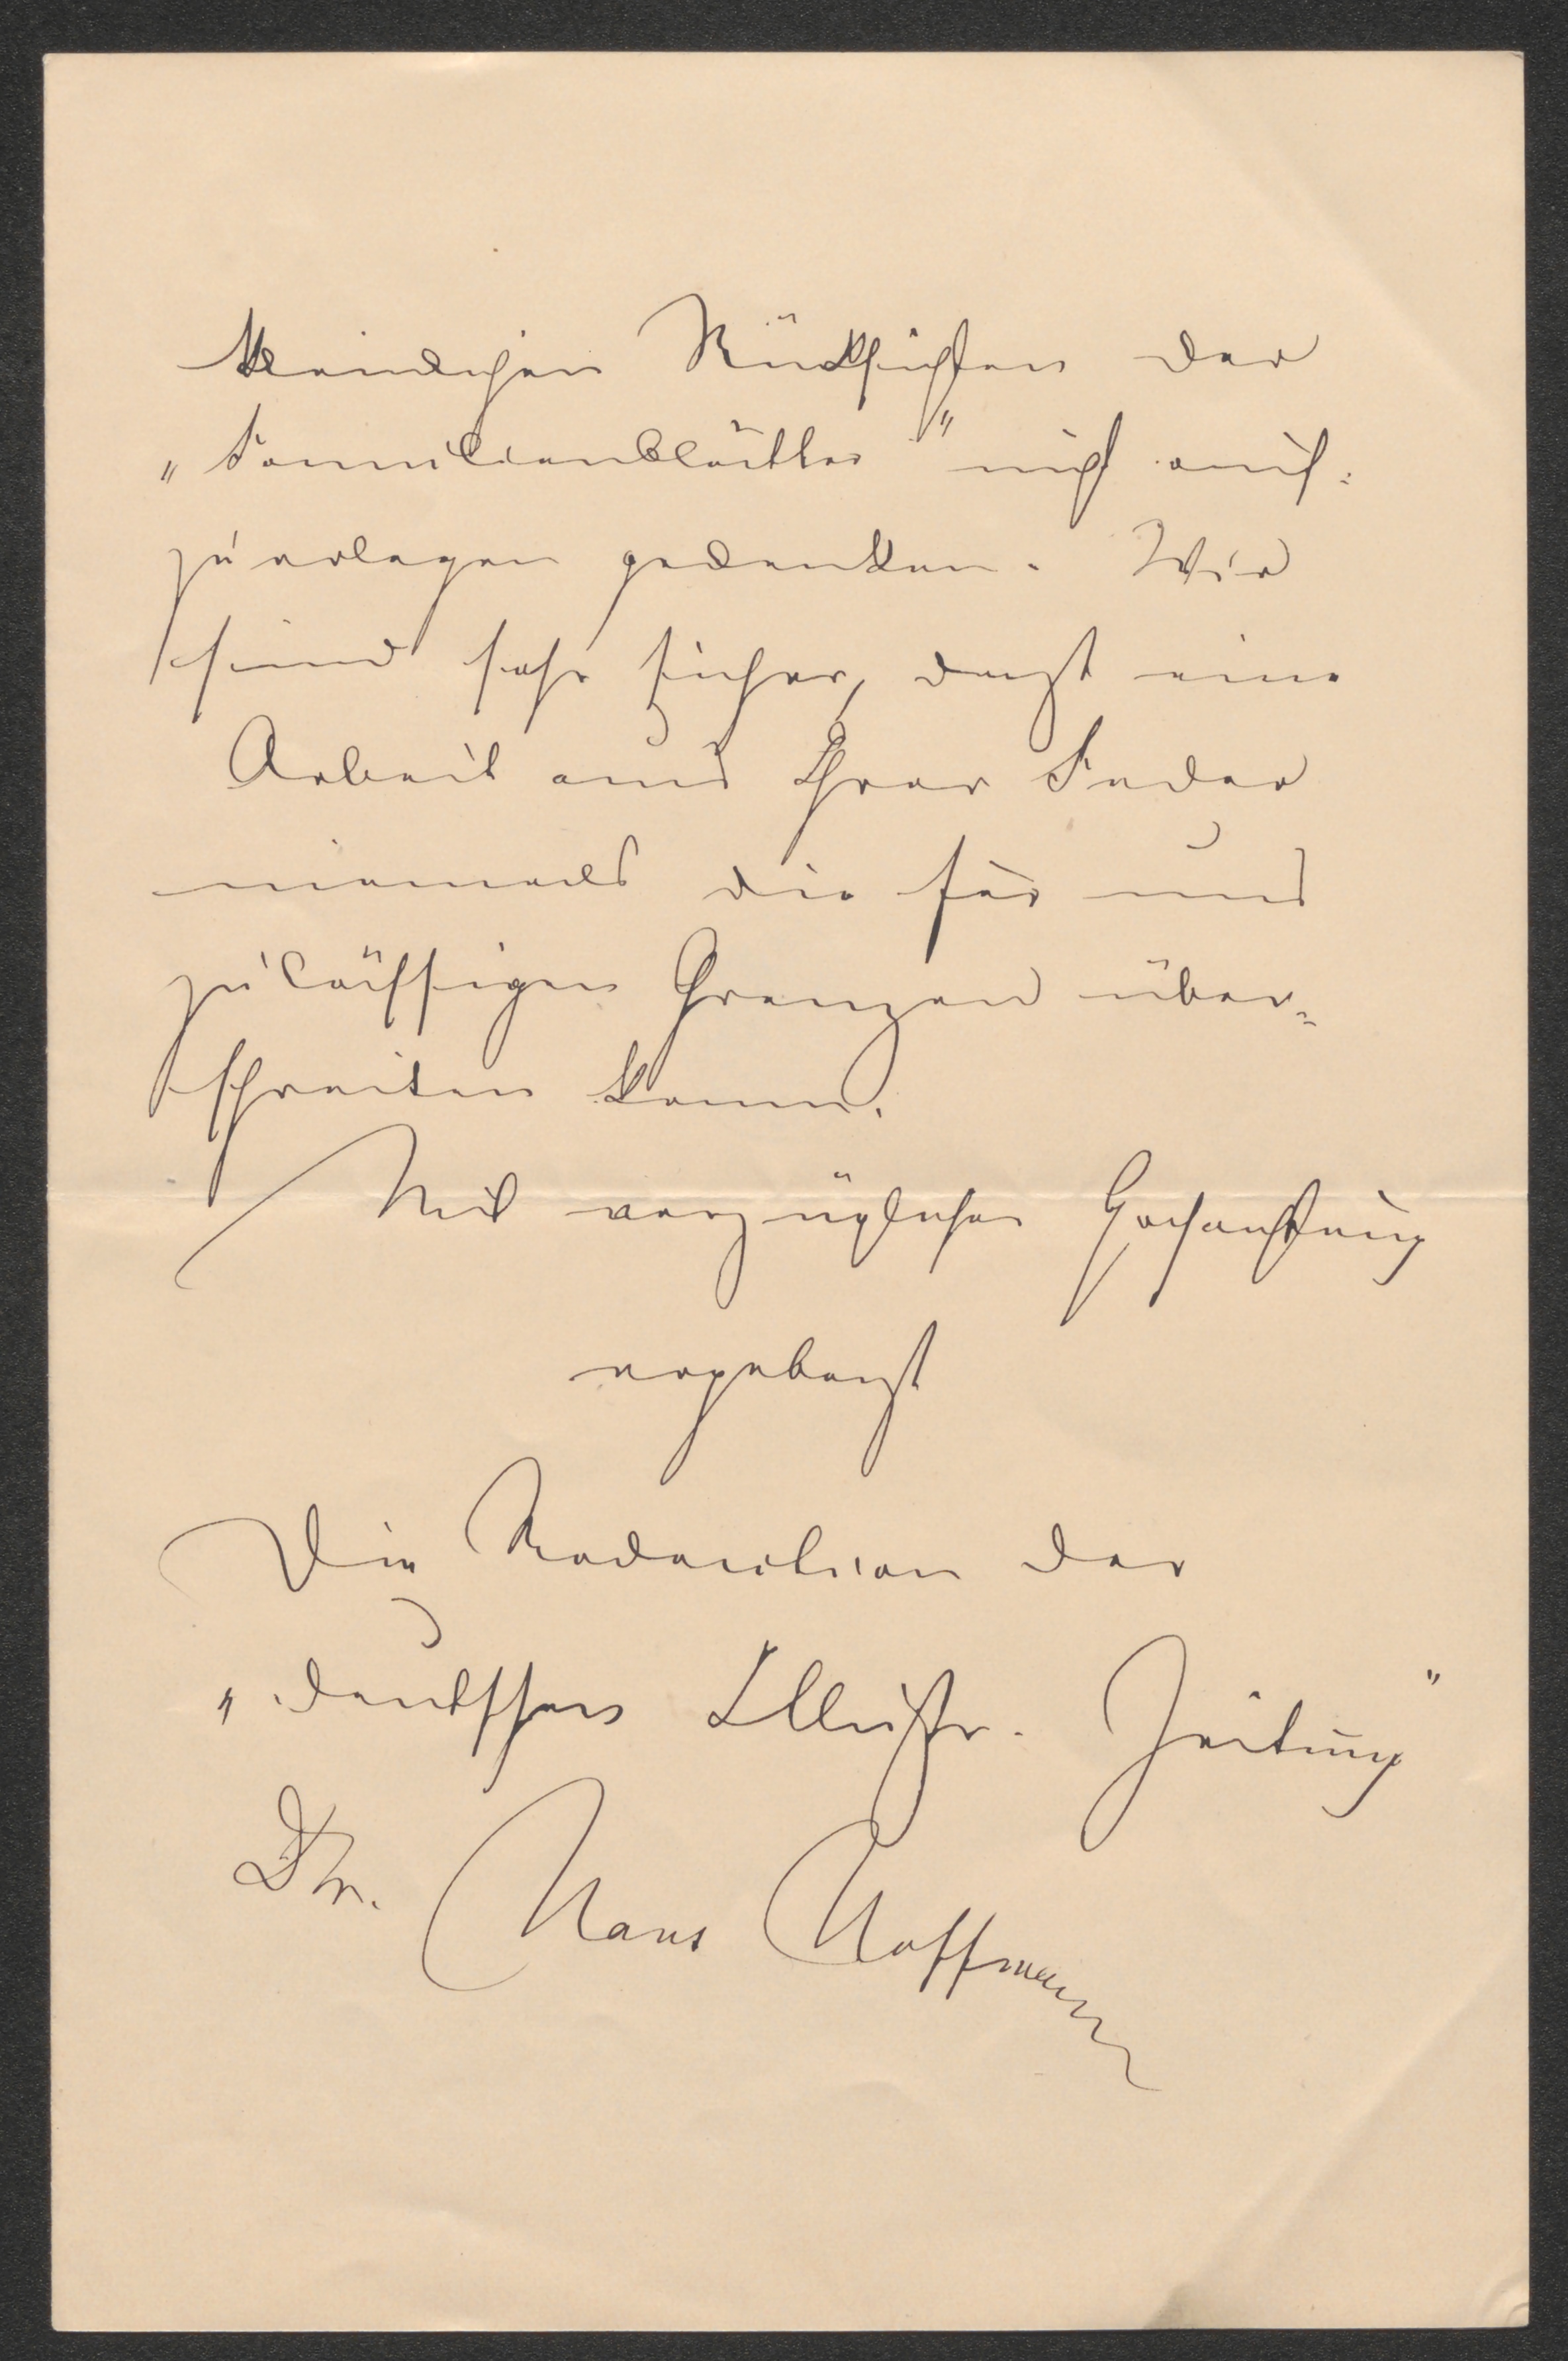 kindischen Rücksichten der
„Familienblätter" nicht auf-
zuerlegen gedenken. Wir
sind sehr sicher, daß eine
Arbeit aus Ihrer Feder
niemals die für uns
zulässigen Grenzen über-
schreiten kann.
Mit vorzüglicher Hochachtung
ergebenst
Die Redaction der
„deutschen Illustr. Zeitung"
Dr. Hans Hoffmann